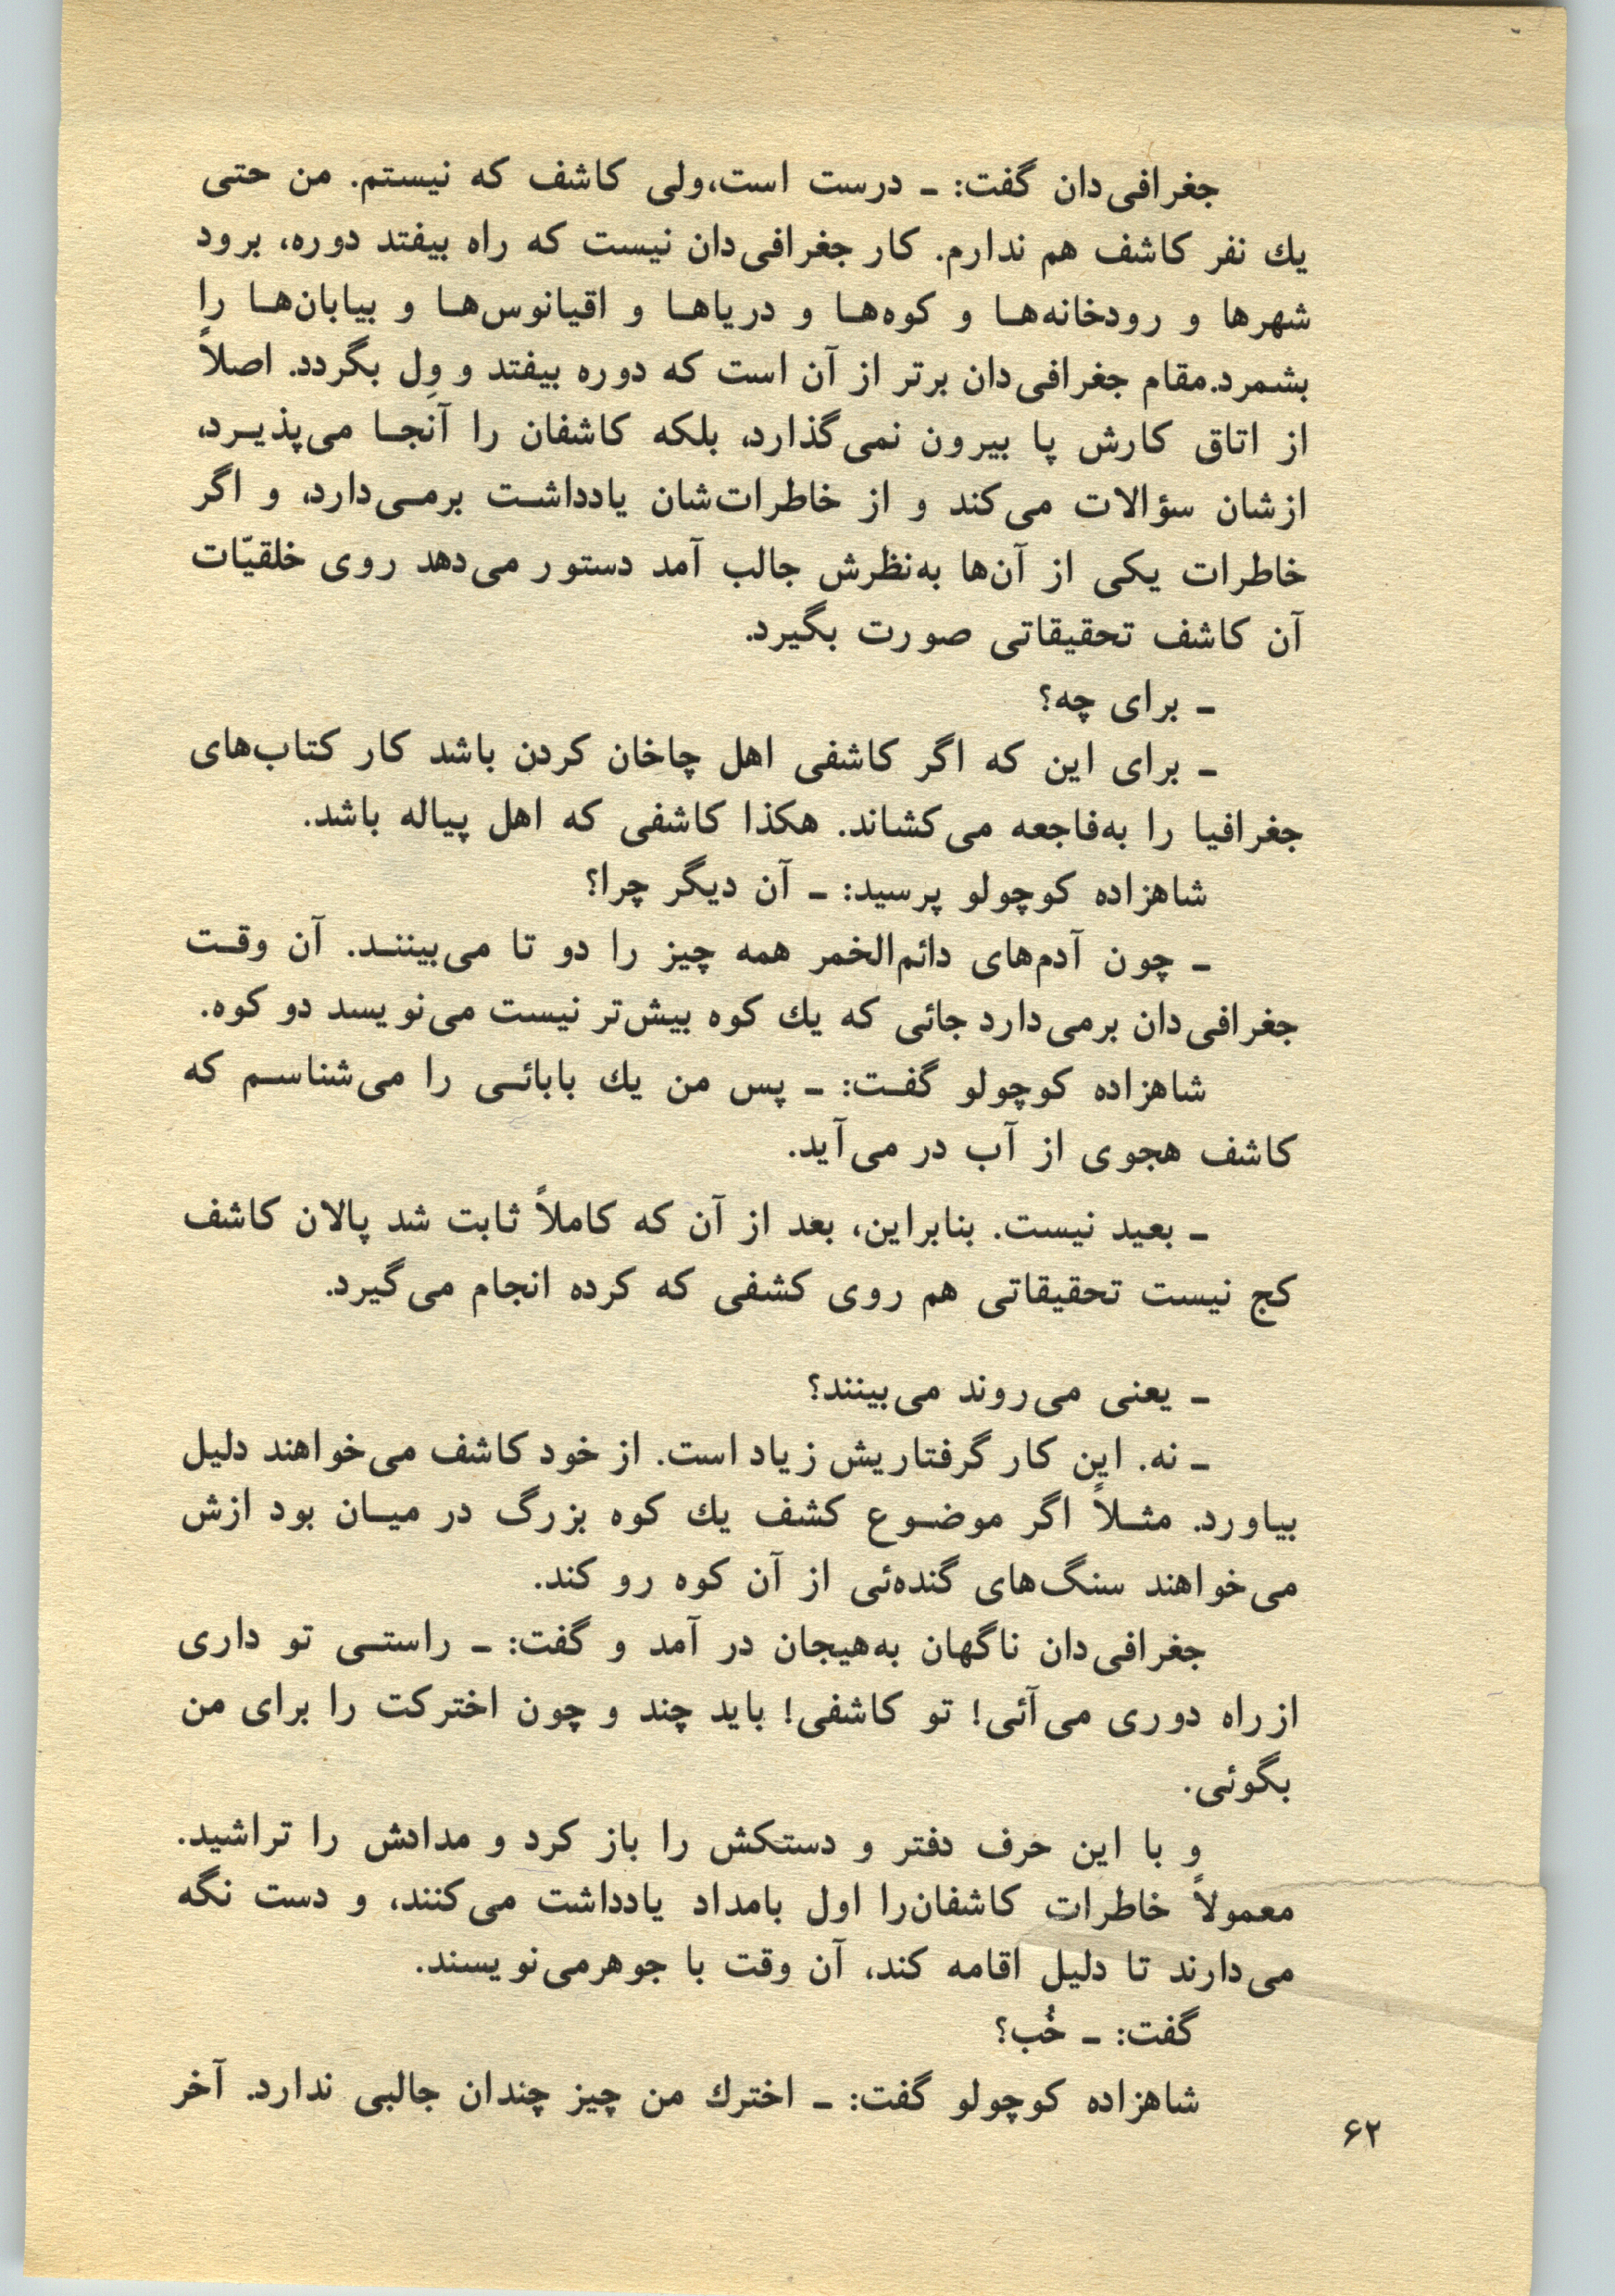 جغرافی‌دان گفت: ـ درست است،ولی کاشف که نیستم. من حتی
یك نفر کاشف هم ندارم. کار جغرافی‌دان نیست که راه بیفتد دوره، برود
شهرها و رودخانه‌هـا و کوه‌هـا و دریاهـا و اقیانوس‌هـا و بیابان‌هـا را
بشمرد.مقام جغرافی‌دان برتر از آن است که دوره بیفتد و وِل بگردد. اصلاً
از اتاق کارش پا بیرون نمی‌گذارد، بلکه کاشفان را آنجـا می‌پذیـرد،
ازشان سؤالات می‌کند و از خاطرات‌شان یادداشـت برمـی‌دارد، و اگر
خاطرات یکی از آن‌ها به‌نظرش جالب آمد دستور می‌دهد روی خلقیّات
آن کاشف تحقیقاتی صورت بگیرد.
ـ برای چه؟
ـ برای این که اگر کاشفی اهل چاخان کردن باشد کار کتاب‌های
جغرافیا را به‌فاجعه می‌کشاند. هکذا کاشفی که اهل پیاله باشد.
شاهزاده کوچولو پرسید: ـ آن دیگر چرا؟
ـ چون آدم‌های دائم‌الخمر همه چیز را دو تا می‌بیننـد. آن وقـت
جغرافی‌دان برمی‌دارد جائی که یك کوه بیش‌تر نیست می‌نویسد دو کوه.
شاهزاده کوچولو گفـت: ـ پس من یك بابائـی را می‌شناسـم که
کاشف هجوی از آب در می‌آید.
ـ بعید نیست. بنابراین، بعد از آن که کاملاً ثابت شد پالان کاشف
کج نیست تحقیقاتی هم روی کشفی که کرده انجام می‌گیرد.
ـ یعنی می‌روند می‌بینند؟
ـ نه. این کار گرفتاریش زیاد است. از خود کاشف می‌خواهند دلیل
بیاورد. مثـلاً اگر موضـوع کشف یك کوه بزرگ در میـان بود ازش
می‌خواهند سنگ‌های گنده‌ئی از آن کوه رو کند.
جغرافی‌دان ناگهان به‌هیجان در آمد و گفت: ـ راستـی تو داری
ازراه دوری می‌آئی! تو کاشفی! باید چند و چون اخترکت را برای من
بگوئی.
و با این حرف دفتر و دستکش را باز کرد و مدادش را تراشید.
معمولاً خاطرات کاشفان‌را اول بامداد یادداشت می‌کنند، و دست نگه
می‌دارند تا دلیل اقامه کند، آن وقت با جوهرمی‌نویسند.
گفت: ـ خُب؟
شاهزاده کوچولو گفت: ـ اخترك من چیز چندان جالبی ندارد. آخر
۶۲